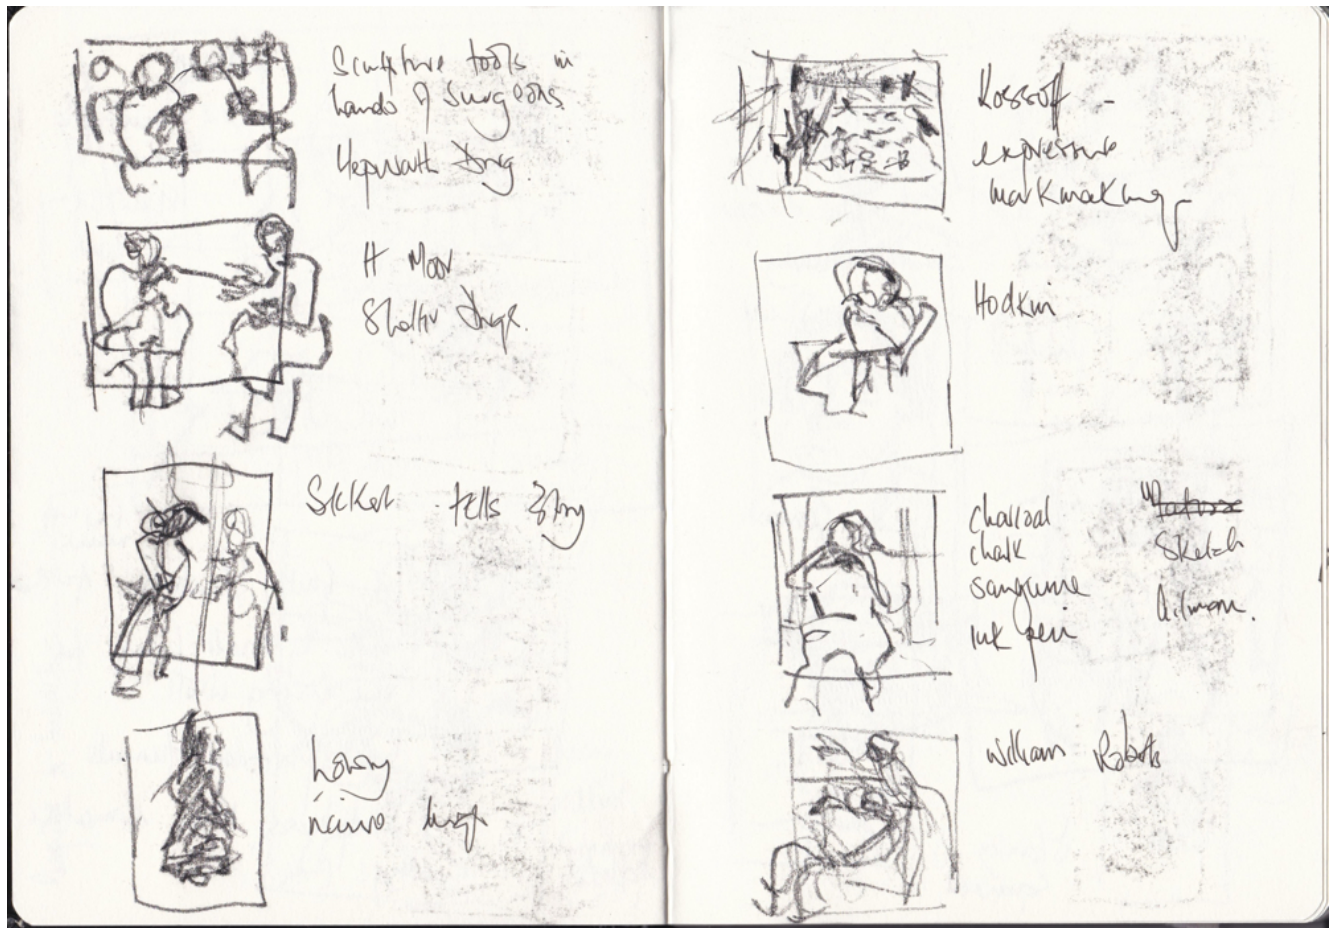 Sculpture tools in
hands of surgeons
Hepworth drwg.
H Moor
Shelter drwgs.
Sickert tells story
Lowry
Kossoff -
expressive
markmaking
Hodkin
charcoal
chalk
sanguine
ink pen
sketch
Gilman.
William Roberts